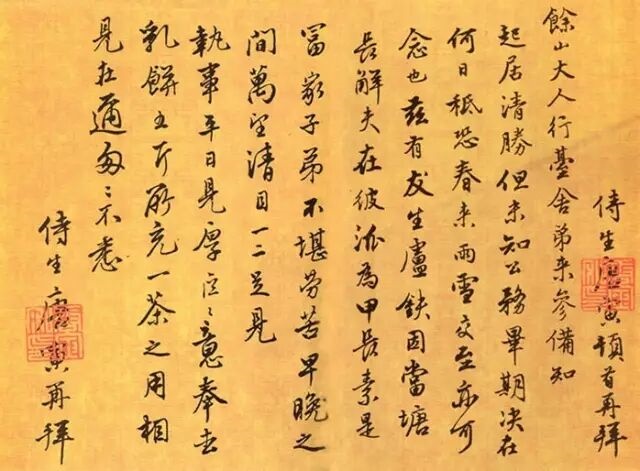 侍生唐寅頓首再拜
餘山大人行臺舍弟來參備知
起居清勝但未知公務畢期決在
何日秪恐春來雨雪交至亦可
念也茲有友生盧鉄因當塘
長解夫在彼派為甲長素是
富家子弟不堪勞苦早晚之
間萬望清目一二足見
執事平日見厚區〻意奉去
乳餅五斤聊充一茶之用相
見在邇匆〻不悉
侍生唐寅再拜